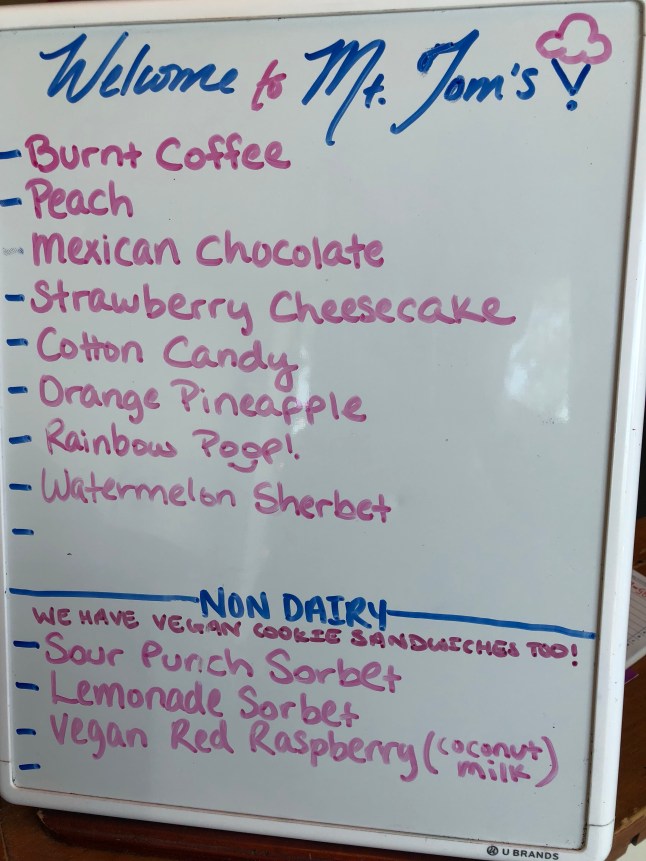 Welcome to Mt. Tom's!
- Burnt Coffee
- Peach
- Mexican Chocolate
- Strawberry Cheesecake
- Cotton Candy
- Orange Pineapple
- Rainbow Poop!
- Watermelon Sherbet
-
NON DAIRY
WE HAVE VEGAN COOKIE SANDWICHES TOO!
- Sour Punch Sorbet
- Lemonade Sorbet
- Vegan Red Raspberry (coconut milk)
-
U BRANDS